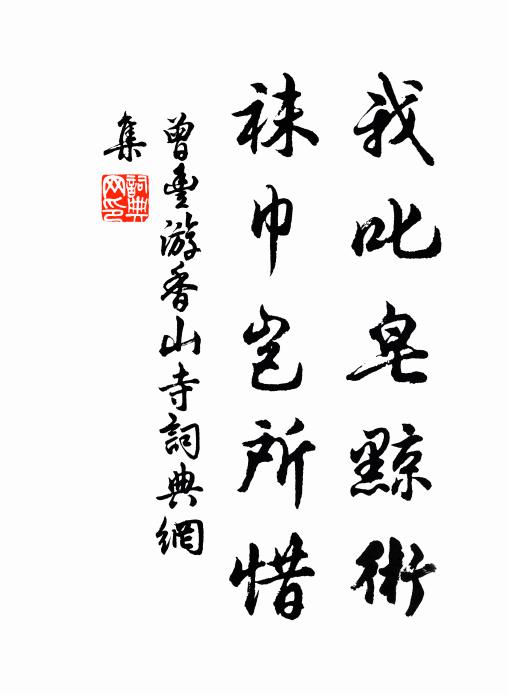 我叱皂黥術
袜巾岂所惜
曾豐游香山寺詞典網
集
詞典网印